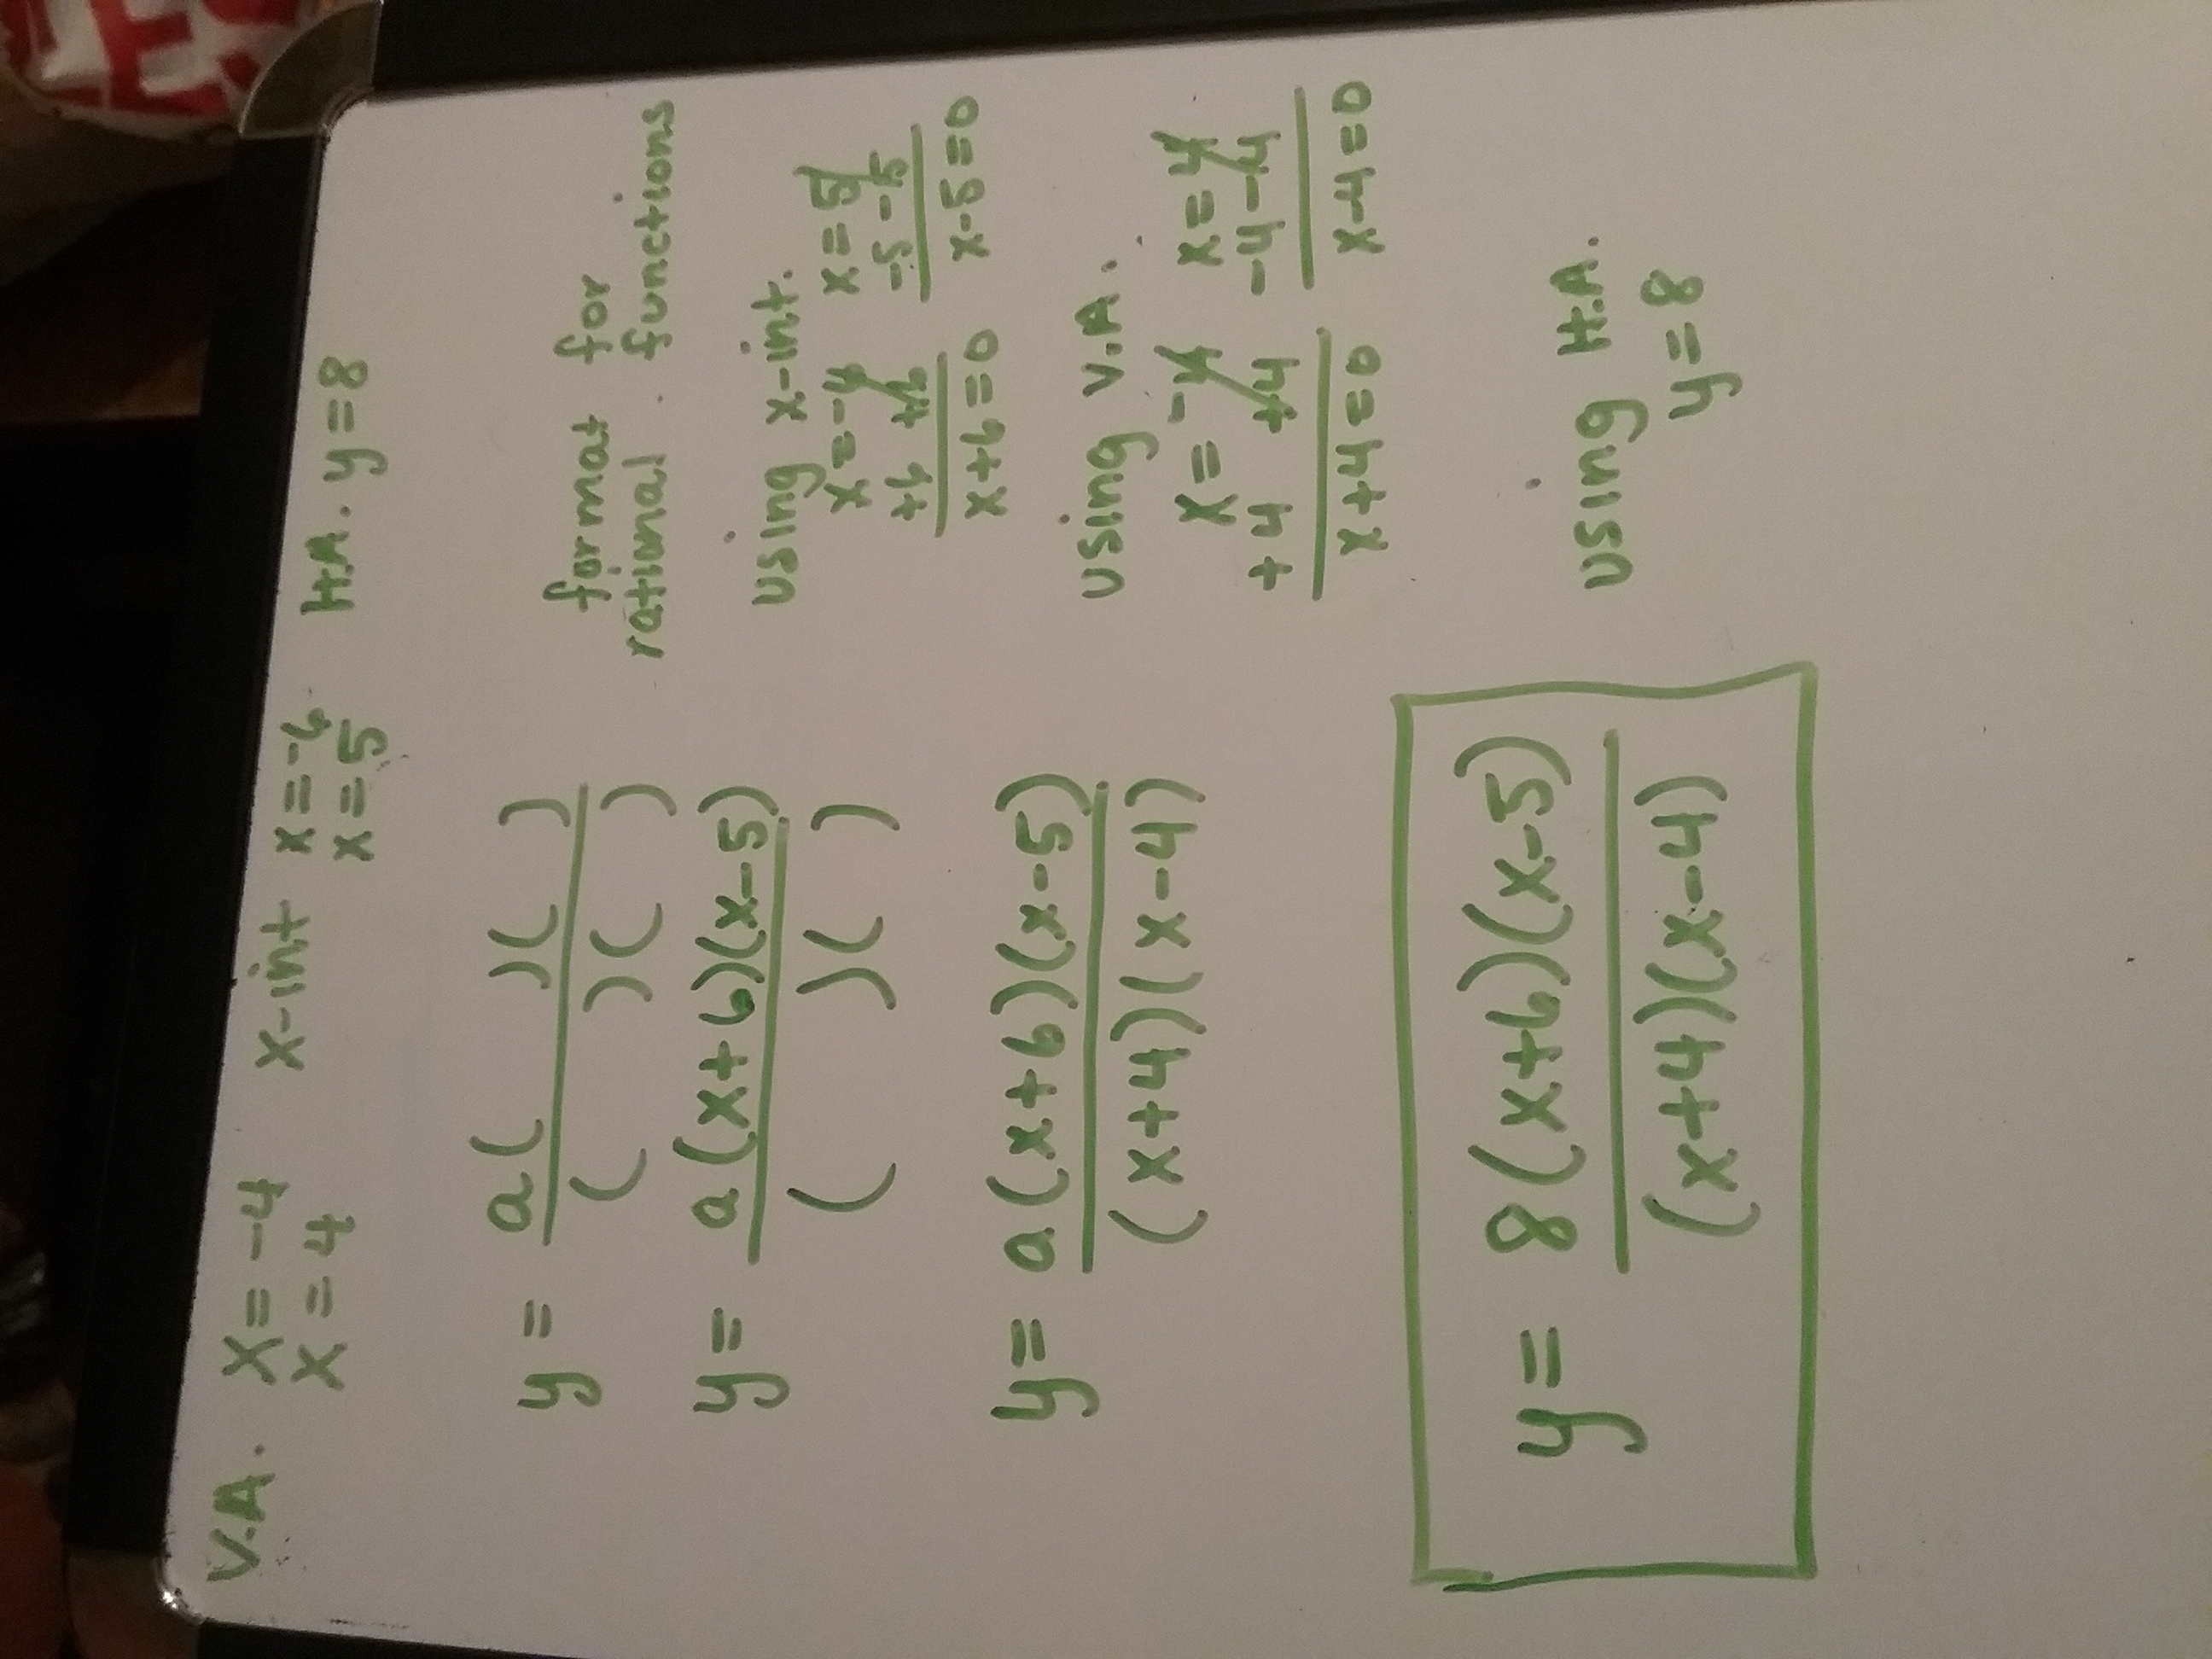 V.A. x=-4 x-int x=-6 H.A. y=8
x=4 x=5
y = a( )( ) / ( )( ) format for
rational functions
y = a(x+6)(x-5) / ( )( ) using x-int.
x=-4 x=5
+6 +6 -5 -5
x+6=0 x-5=0
y = a(x+6)(x-5) / (x+4)(x-4) using V.A.
x=-4 x=4
+4 +4 -4-4
x+4=0 x-4=0
y = 8(x+6)(x-5) / (x+4)(x-4) using H.A.
y=8